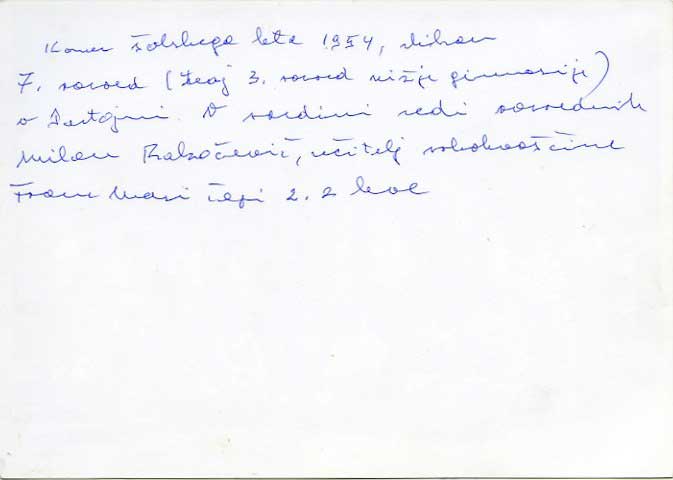 Konec šolskega leta 1954,
7. razred (tedaj 3. razred nižje gimnazije)
v Postojni. V sredini sedi razrednik
Milan Rakočević, učitelj srbohrvaščine
Franc čepi 2. z leve